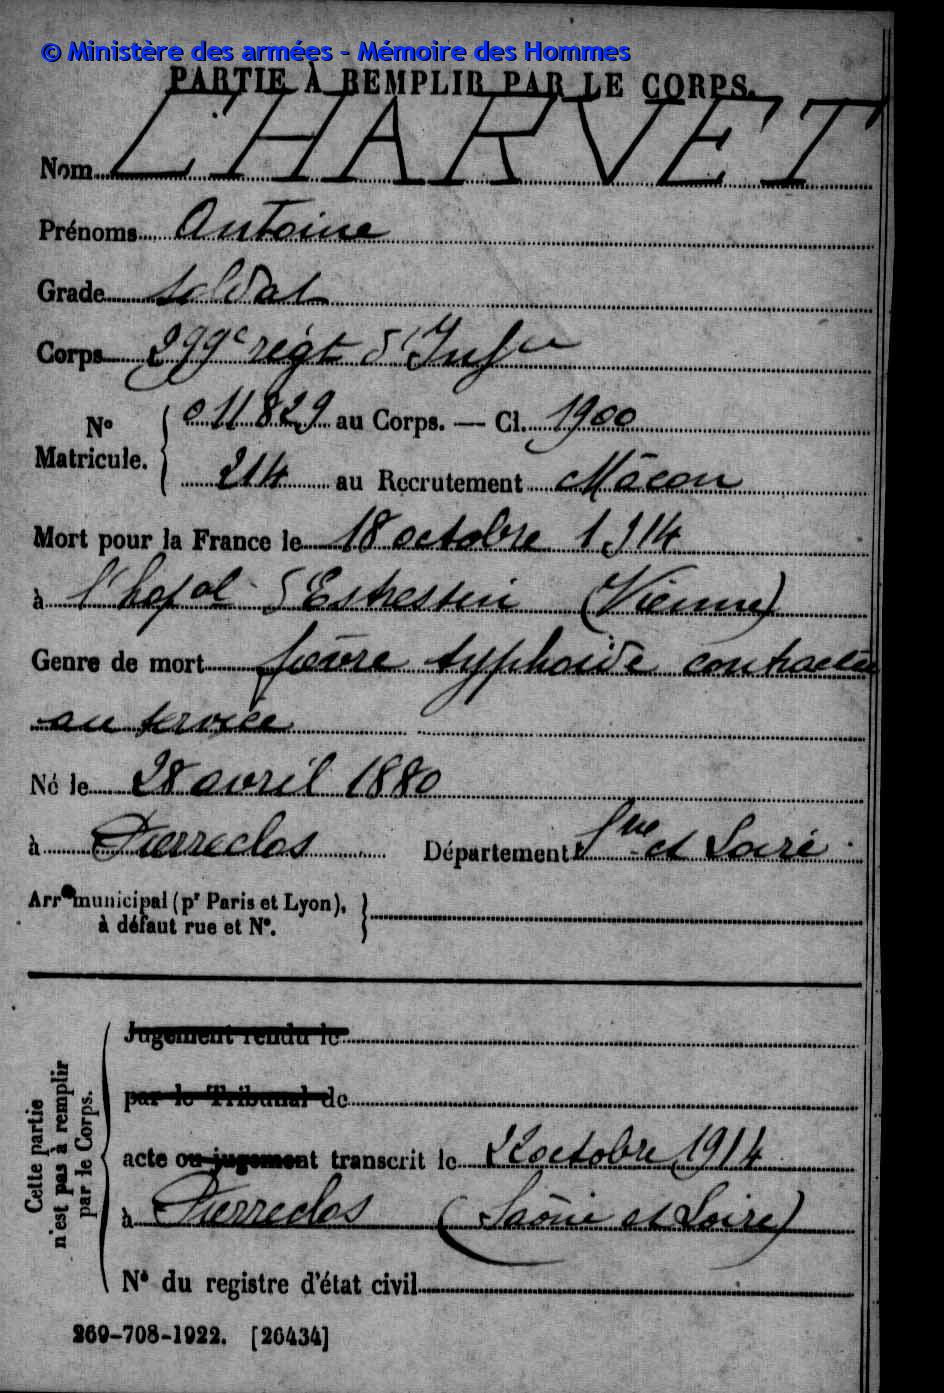 © Ministère des armées - Mémoire des Hommes
PARTIE À REMPLIR PAR LE CORPS.
Nom CHARVET
Prénoms Antoine
Grade soldat
Corps 299e régt d'Infie
No Matricule. 011829 au Corps. — Cl. 1900
214 au Recrutement Mâcon
Mort pour la France le 18 octobre 1914
à l'hopal d'Estressin (Vienne)
Genre de mort fièvre typhoïde contractée
au service
Né le 28 avril 1880
à Pierreclos Département Sne et Loire
Arrt municipal (pr Paris et Lyon),
à défaut rue et No.
Cette partie
n'est pas à remplir
par le Corps.
Jugement rendu le
par le Tribunal de
acte ou jugement transcrit le 22 octobre 1914
à Pierreclos (Saône et Loire)
No du registre d'état civil
269-708-1922. [26434]